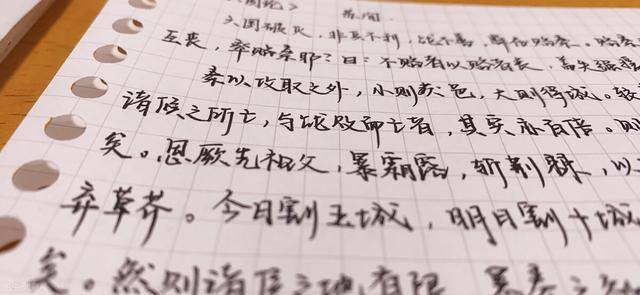 六国破灭，非兵不利，战不善，弊在赂秦。赂秦
互丧，率赂秦耶？曰：不赂者以赂者丧，盖失强援
秦以攻取之外，小则获邑，大则得城。较
诸侯之所亡，与战败而亡者，其实亦百倍。则
矣。思厥先祖父，暴霜露，斩荆棘，以
弃草芥。今日割五城，明日割十城
矣。然则诸侯之地有限，暴秦之